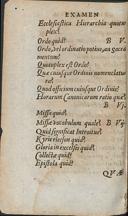 EXAMEN
Ecclesiastica Hierarchia quotu-
plex?
Ordo quid? B V.
Ordo, vel ordinatio potius, an sacra-
mentum?
Quotuplex est Ordo?
Quæ cuiusque Ordinis nomenclatu-
ra?
Quod officium cuiusque Ordinis?
Horarum Canonicarum ratio quæ?
B Vj.
Missa quid?
Missæ vocabulum quale? B Vij
Quid significat Introitus?
Kyrie eleison quid?
Gloria in excelsis quid?
Collecta quid?
Epistola quid?
QVÆ